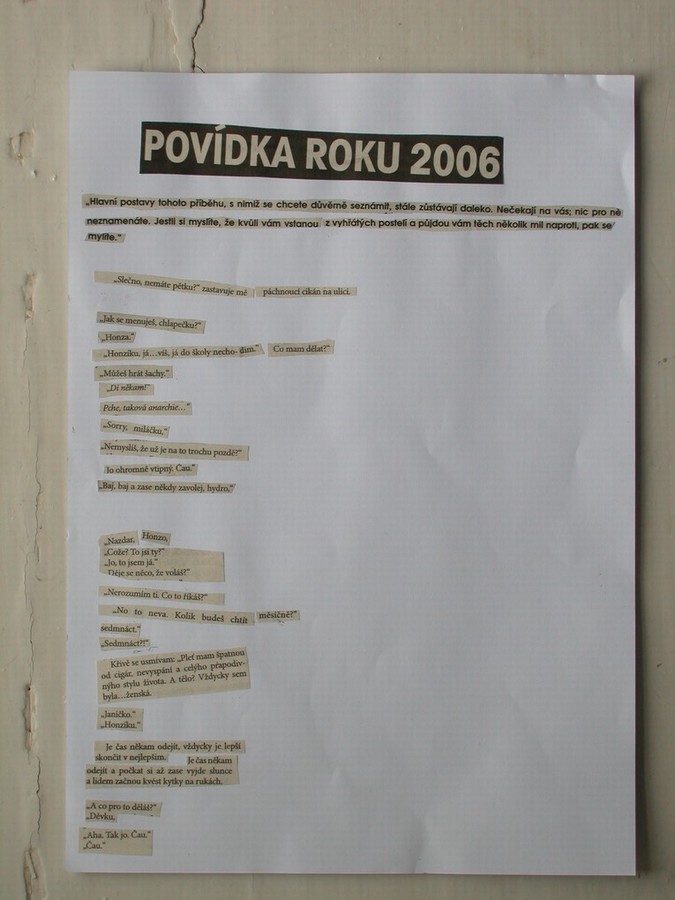 POVÍDKA ROKU 2006
„Hlavní postavy tohoto příběhu, s nimiž se chcete důvěrně seznámit, stále zůstávají daleko. Nečekají na vás; nic pro ně
neznamenáte. Jestli si myslíte, že kvůli vám vstanou z vyhřátých postelí a půjdou vám těch několik mil naproti, pak se
mýlíte.“
„Slečno, nemáte pětku?“ zastavuje mě páchnoucí cikán na ulici.
„Jak se menuješ, chlapečku?“
„Honza.“
„Honzíku, já...víš, já do školy necho- dím.“ Co mam dělat?“
„Můžeš hrát šachy.“
„Di někam!“
Pche, taková anarchie...“
„Sorry, miláčku,“
„Nemyslíš, že už je na to trochu pozdě?“
To ohromně vtipný. Čau.“
„Baj, baj a zase někdy zavolej, hydro,“
„Nazdar, Honzo,
„Cože? To jsi ty?“
„Jo, to jsem já.“
Děje se něco, že voláš?“
„Nerozumím ti. Co to říkáš?“
„No to neva. Kolik budeš chtít měsíčně?“
sedmnáct.“
„Sedmnáct?!“
Křivě se usmívam: „Pleť mam špatnou
od cigár, nevyspání a celýho přapodiv-
nýho stylu života. A tělo? Vždycky sem
byla...ženská.
„Janičko.“
„Honzíku.“
Je čas někam odejít, vždycky je lepší
skončit v nejlepším. Je čas někam
odejít a počkat si až zase vyjde slunce
a lidem začnou kvést kytky na rukách.
„A co pro to děláš?“
„Děvku,
„Aha. Tak jo. Čau.“
„Čau.“